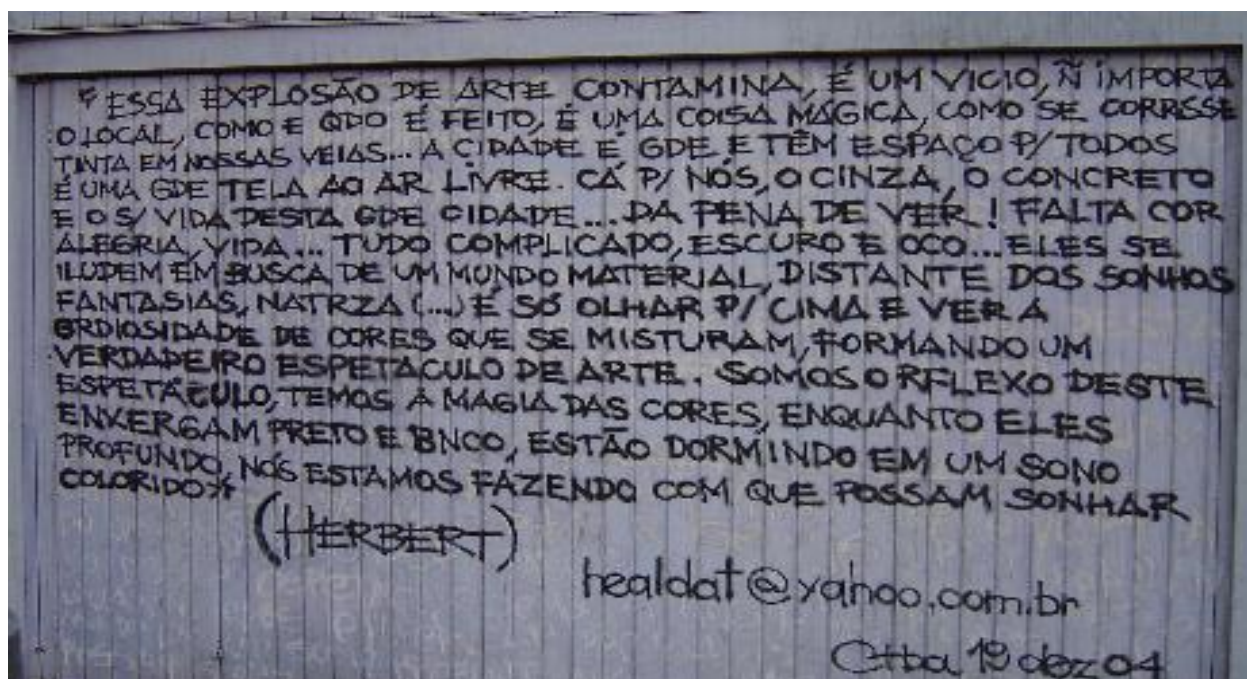 * ESSA EXPLOSÃO DE ARTE CONTAMINA, É UM VICIO, Ñ IMPORTA
O LOCAL, COMO E QDO É FEITO, É UMA COISA MÁGICA, COMO SE CORRESSE
TINTA EM NOSSAS VEIAS... A CIDADE É GDE E TÊM ESPAÇO P/ TODOS
É UMA GDE TELA AO AR LIVRE. CÁ P/ NÓS, O CINZA, O CONCRETO
E O S/ VIDA DESTA GDE CIDADE... DA PENA DE VER! FALTA COR
ALEGRIA, VIDA... TUDO COMPLICADO, ESCURO E OCO... ELES SE
ILUDEM EM BUSCA DE UM MUNDO MATERIAL, DISTANTE DOS SONHOS
FANTASIAS, NATRZA (...) É SÓ OLHAR P/ CIMA E VER A
GRDIOSIDADE DE CORES QUE SE MISTURAM, FORMANDO UM
VERDADEIRO ESPETACULO DE ARTE. SOMOS O RFLEXO DESTE
ESPETÁCULO, TEMOS A MAGIA DAS CORES, ENQUANTO ELES
ENXERGAM PRETO E BNCO, ESTÃO DORMINDO EM UM SONO
PROFUNDO, NÓS ESTAMOS FAZENDO COM QUE POSSAM SONHAR
COLORIDO *
(HERBERT)
healdat@yahoo.com.br
Ctba 19 dez 04